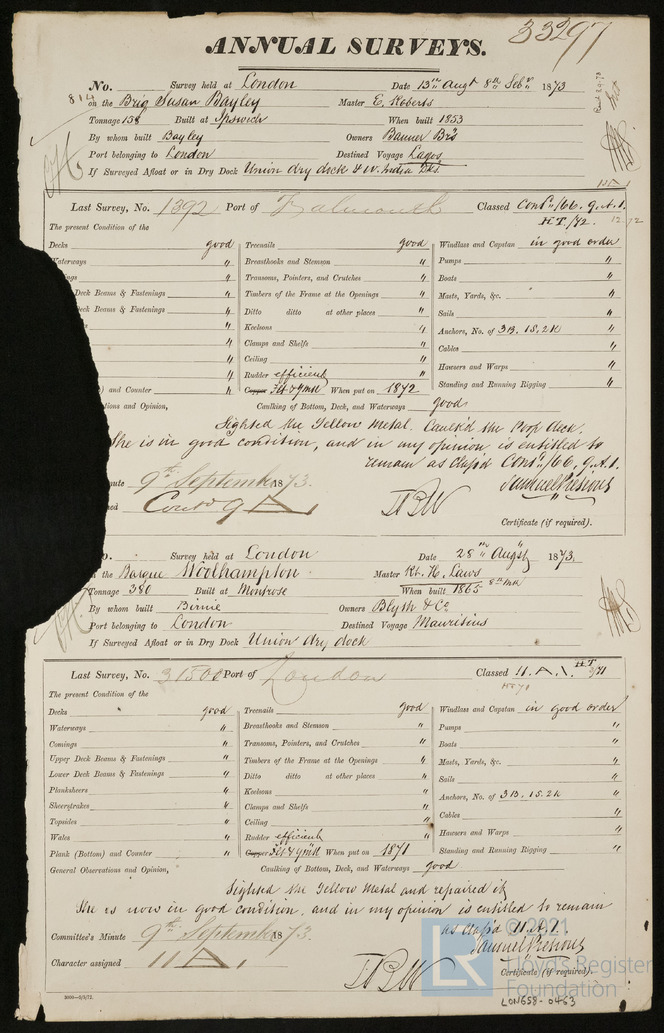 33297
ANNUAL SURVEYS.
No. Survey held at London Date 13th Augt 8th Sepr 1873
814
on the Brig Susan Bayley Master E. Roberts
Tonnage 138 Built at Ipswich When built 1853
By whom built Bayley Owners Banner Brs
Port belonging to London Destined Voyage Lagos
If Surveyed Afloat or in Dry Dock Union dry dock & W. India Dks.
Last Survey, No. 1392 Port of Falmouth Classed Contd. /66. 9. A. 1.
H.T. /72. 12.72
The present Condition of the
Decks good Treenails good Windlass and Capstan in good order
Waterways " Breasthooks and Stemson " Pumps "
ings " Transoms, Pointers, and Crutches " Boats "
Deck Beams & Fastenings " Timbers of the Frame at the Openings " Masts, Yards, &c. "
Deck Beams & Fastenings " Ditto ditto at other places " Sails "
" Keelsons " Anchors, No. of 3B. 1S. 2K "
" Clamps and Shelfs " Cables "
" Ceiling " Hawsers and Warps "
" Rudder efficient " Standing and Running Rigging "
) and Counter " Copper Felt & YMtl When put on 1872
tions and Opinion, Caulking of Bottom, Deck, and Waterways good
Sighted the Yellow Metal. Caulk'd the Poop deck.
She is in good condition, and in my opinion is entitled to
remain as Class'd Contd. /66. 9. A. 1.
nute 9th September 1873.
ed Contd 9 A 1
Certificate (if required).
o. Survey held at London Date 28th Augst 1873.
on the Barque Woolhampton Master Rt. H. Laws
Tonnage 380 Built at Montrose When built 1865 8th Mo
By whom built Birnie Owners Blyth & Co
Port belonging to London Destined Voyage Mauritius
If Surveyed Afloat or in Dry Dock Union dry dock
Last Survey, No. 31500 Port of London Classed 11. A. 1. HT /71
HT 71
The present Condition of the
Decks good Treenails good Windlass and Capstan in good order
Waterways " Breasthooks and Stemson " Pumps "
Comings " Transoms, Pointers, and Crutches " Boats "
Upper Deck Beams & Fastenings " Timbers of the Frame at the Openings " Masts, Yards, &c. "
Lower Deck Beams & Fastenings " Ditto ditto at other places " Sails "
Planksheers " Keelsons " Anchors, No. of 3B. 1S. 2K "
Sheerstrakes " Clamps and Shelfs " Cables "
Topsides " Ceiling " Hawsers and Warps "
Wales " Rudder efficient Standing and Running Rigging "
Plank (Bottom) and Counter " Copper Felt & YMtl When put on 1871
General Observations and Opinion, Caulking of Bottom, Deck, and Waterways good
Sighted the Yellow Metal and repaired it
She is now in good condition, and in my opinion is entitled to remain
as Class'd 11. A. 1.
Committee's Minute 9th September 1873.
Character assigned 11 A 1
Certificate (if required).
© 2021
Lloyd's Register
Foundation
LON658-0463